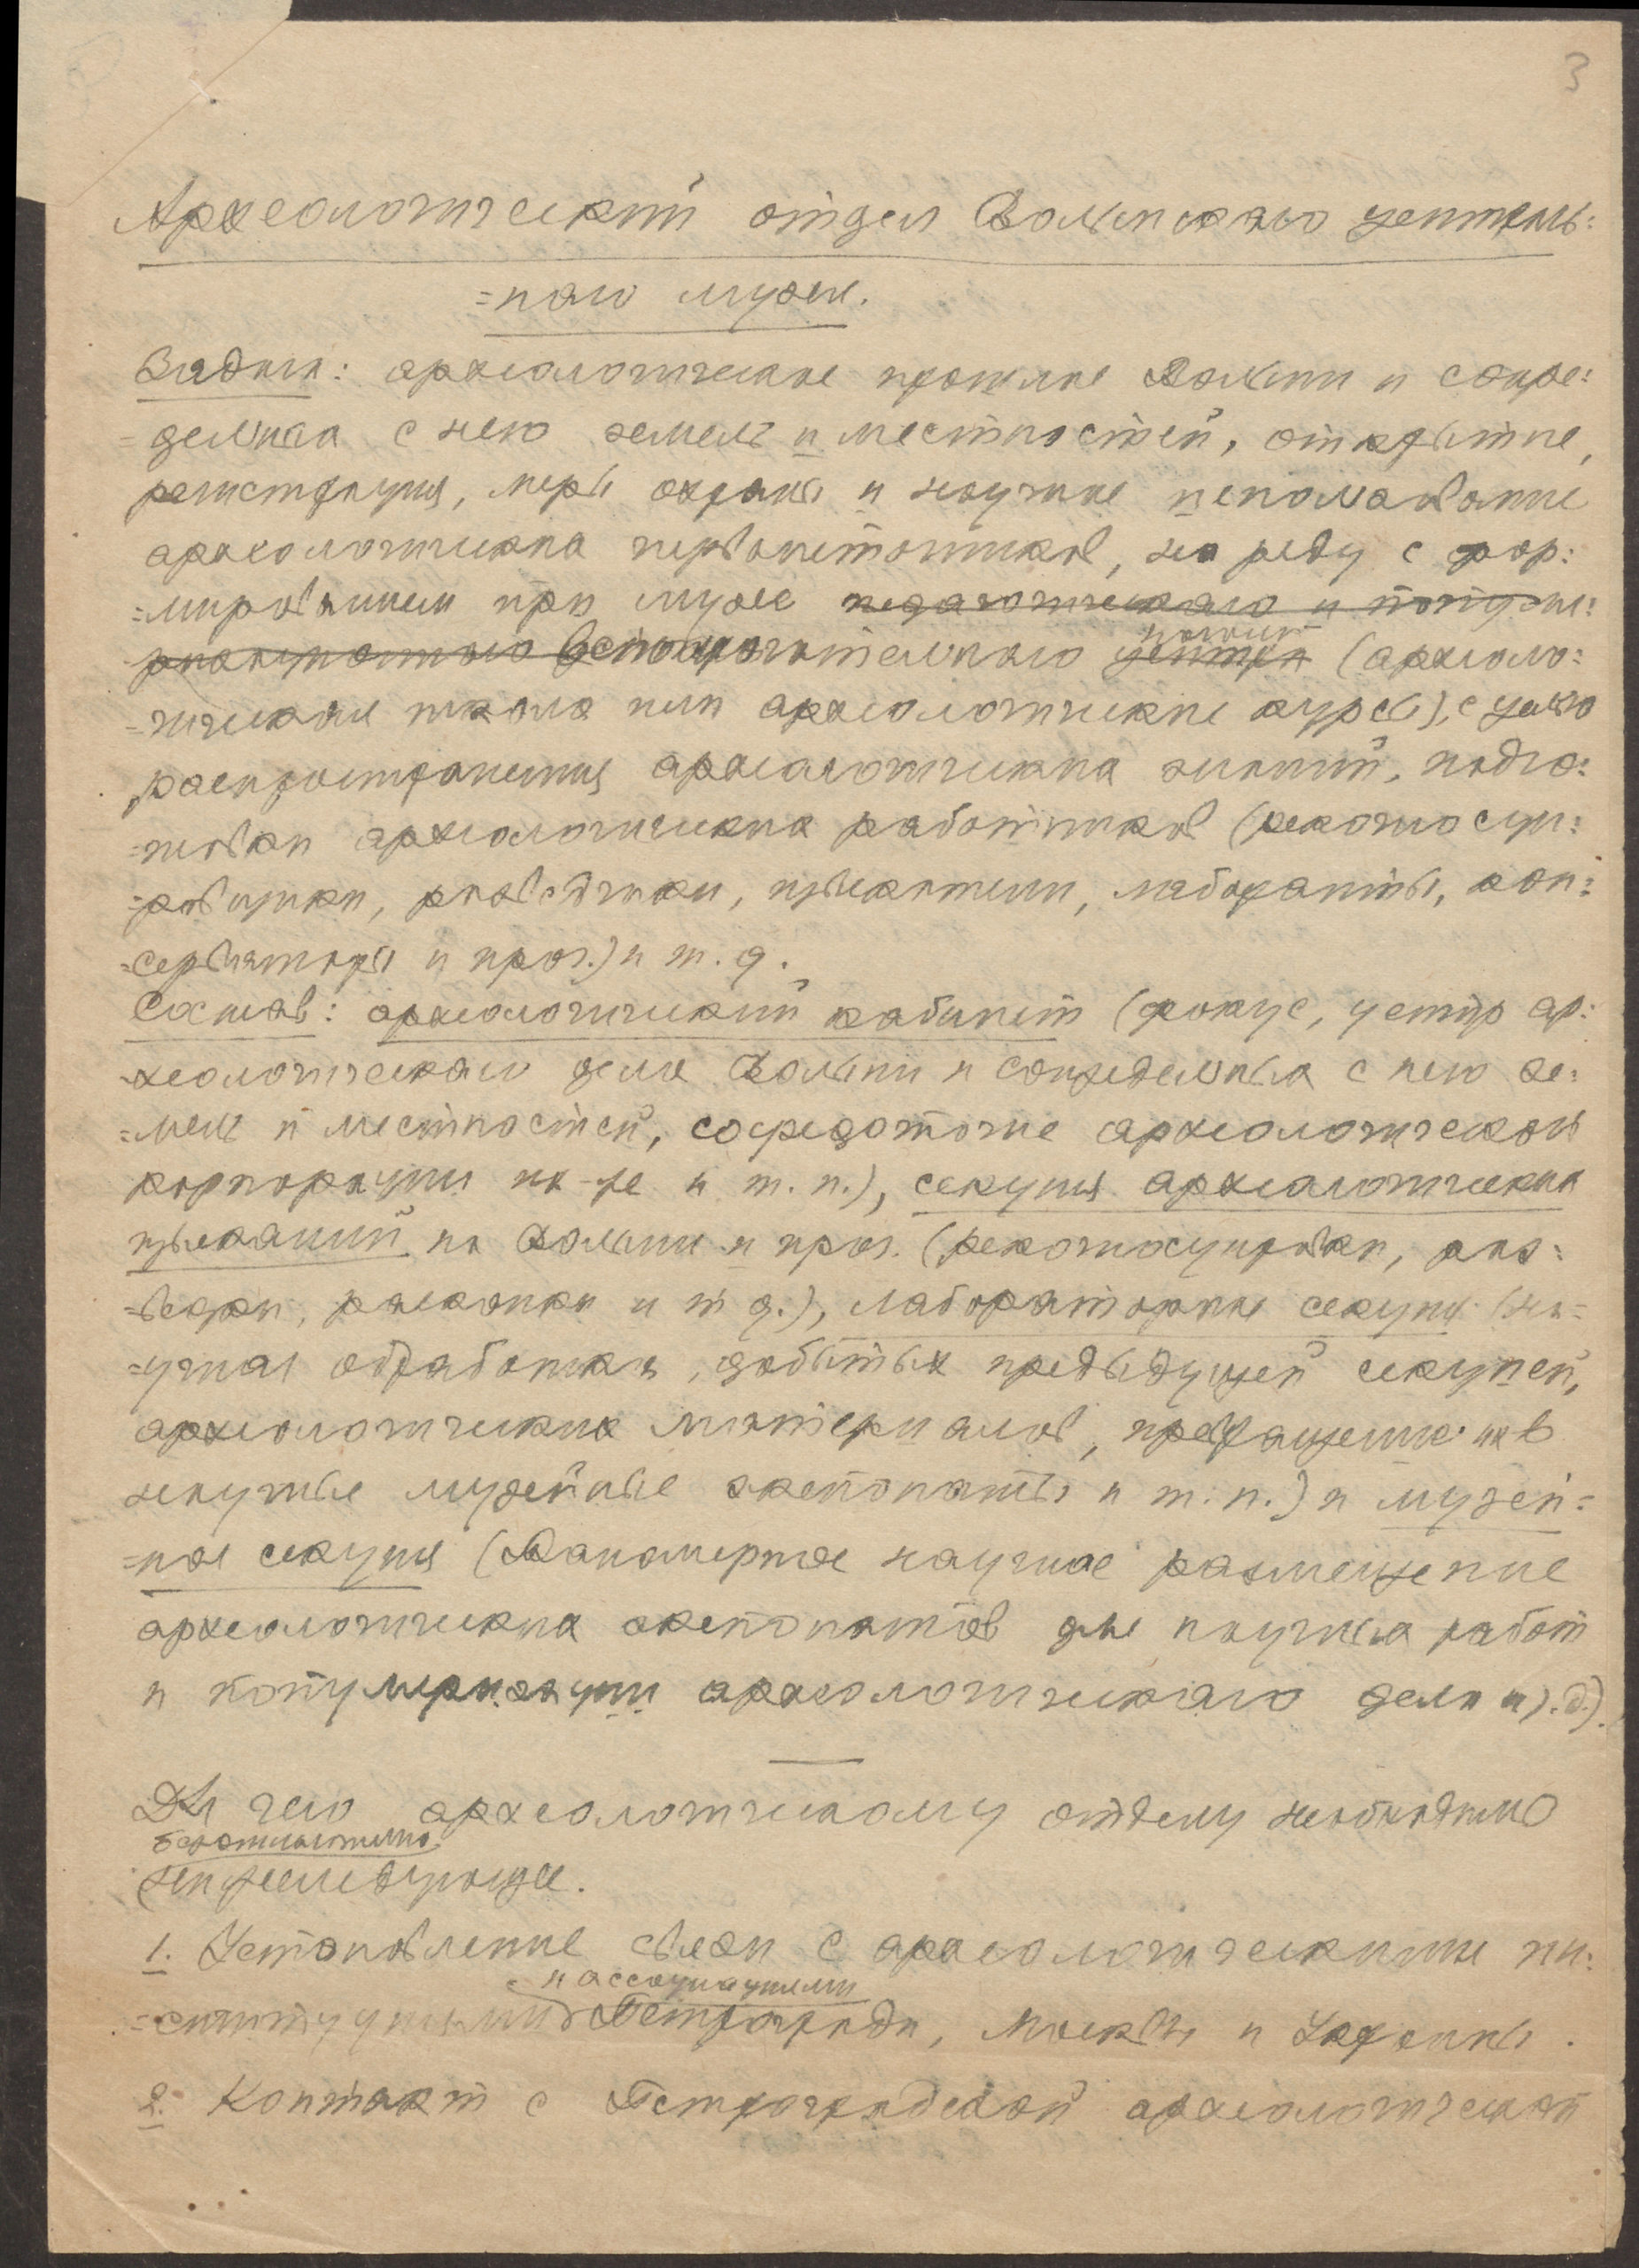 3
Археологический отдел Волынскаго централь:
=наго музея.
Задачи: археологическое прошлое Волыни и сопре:
=дельных с нею земель и местностей, открытие,
регистрация, меры охраны и научное использование
археологических первоисточников, на ряду с фор:
=мированием при музее педагогическаго и популя:
ризационного вспомогательнаго центра (археоло:
=гическая школа или археологические курсы), с целью
распространения археологических знаний, подго:
=товки археологических работников (рекогносци:
=ровщики, разведчики, изыскатели, лаборанты, кон:
=серваторы и проч.) и т. д.
Состав: археологический кабинет (фокус, центр ар:
=хеологическаго дела Волыни и сопредельных с нею зе:
=мель и местностей, сосредоточие археологической
корпорации и т. п.), секция археологических
изысканий на Волыни и проч. (рекогносцировки, раз:
=ведки, раскопки и т д.), лабораторная секция (на=
=учная обработка, добытых предыдущей секцией,
археологических материалов, превращение их в
научные музейные экспонаты и т. п.) и музей=
=ная секция (планомерное научное размещение
археологических экспонатов для научных работ
и популяризации археологическаго дела и т. д.).
Для чего археологическому отделу необходимо
безотлагательно
нижеследующее.
1. Установление связи с археологическими ин:
и ассоциациями
=ституциями Петрограда, Москвы и Украины.
2. Контакт с Петроградской археологической